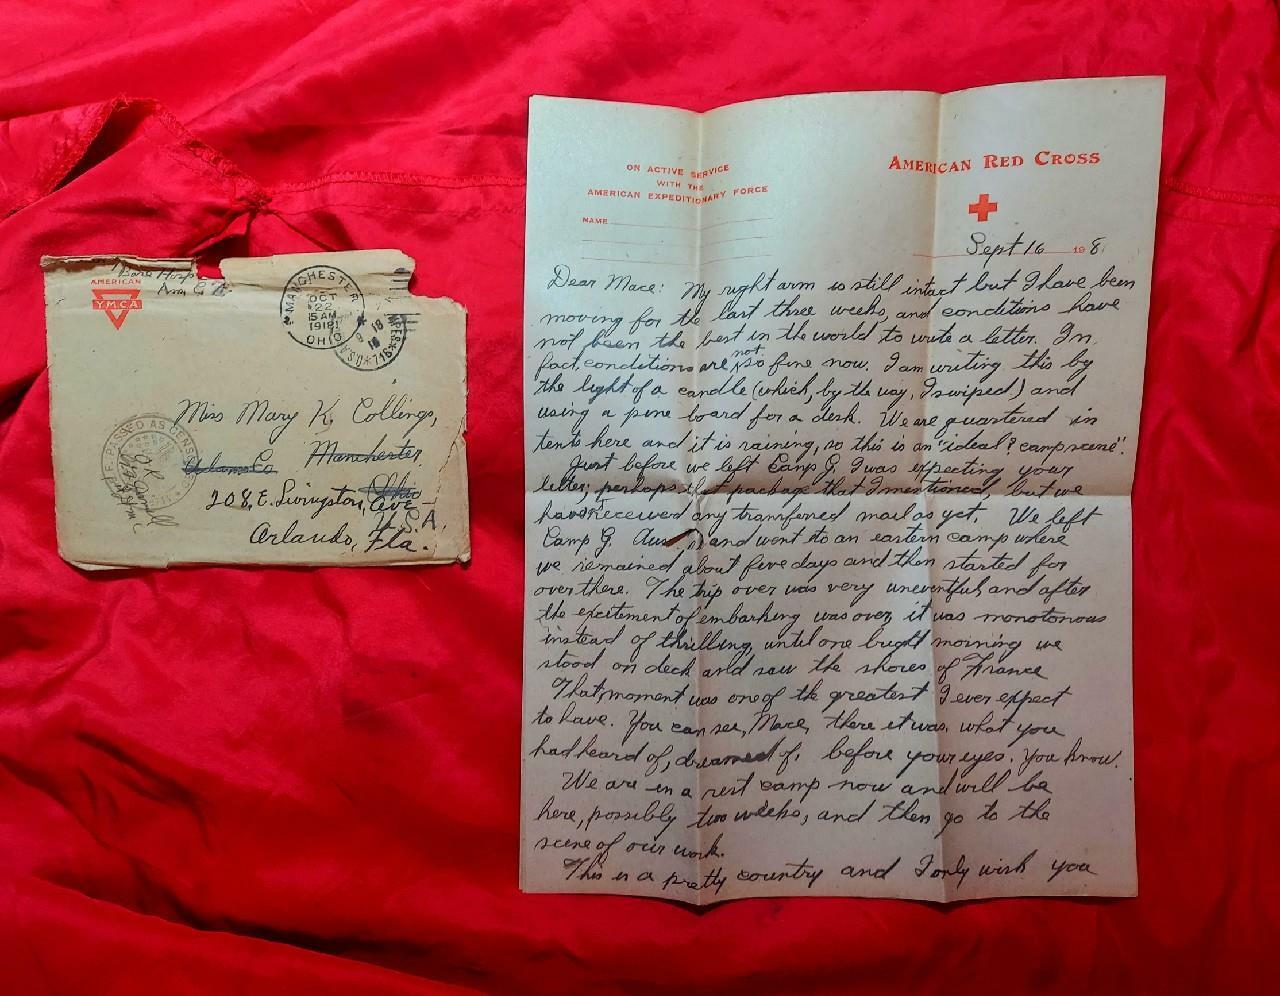 Base Hosp
Am E
AMERICAN
YMCA
MANCHESTER
OCT
22
15 AM
1918
OHIO
Miss Mary K. Collings,
Adams Co Manchester
Ohio
208 E. Livingston, Ave
U.S.A.
Orlando, Fla.
PASSED AS CENSORED
ON ACTIVE SERVICE
WITH THE
AMERICAN EXPEDITIONARY FORCE
NAME
AMERICAN RED CROSS
Sept 16 1918.
Dear Mace: My right arm is still intact but I have been
moving for the last three weeks, and conditions have
not been the best in the world to write a letter. In
fact, conditions are not so fine now. I am writing this by
the light of a candle (which, by the way, I swiped) and
using a pine board for a desk. We are quartered in
tents here and it is raining, so this is an "ideal? camp scene".
Just before we left Camp G. I was expecting your
letter; perhaps that package that I mentioned, but we
haven't received any transferred mail as yet. We left
Camp G. and went to an eastern camp where
we remained about five days and then started for
over there. The trip over was very uneventful and after
the excitement of embarking was over, it was monotonous
instead of thrilling, until one bright morning we
stood on deck and saw the shores of France
That moment was one of the greatest I ever expect
to have. You can see, Mace, there it was, what you
had heard of, dreamed of, before your eyes. You know.
We are in a rest camp now and will be
here, possibly two weeks, and then go to the
scene of our work.
This is a pretty country and I only wish you